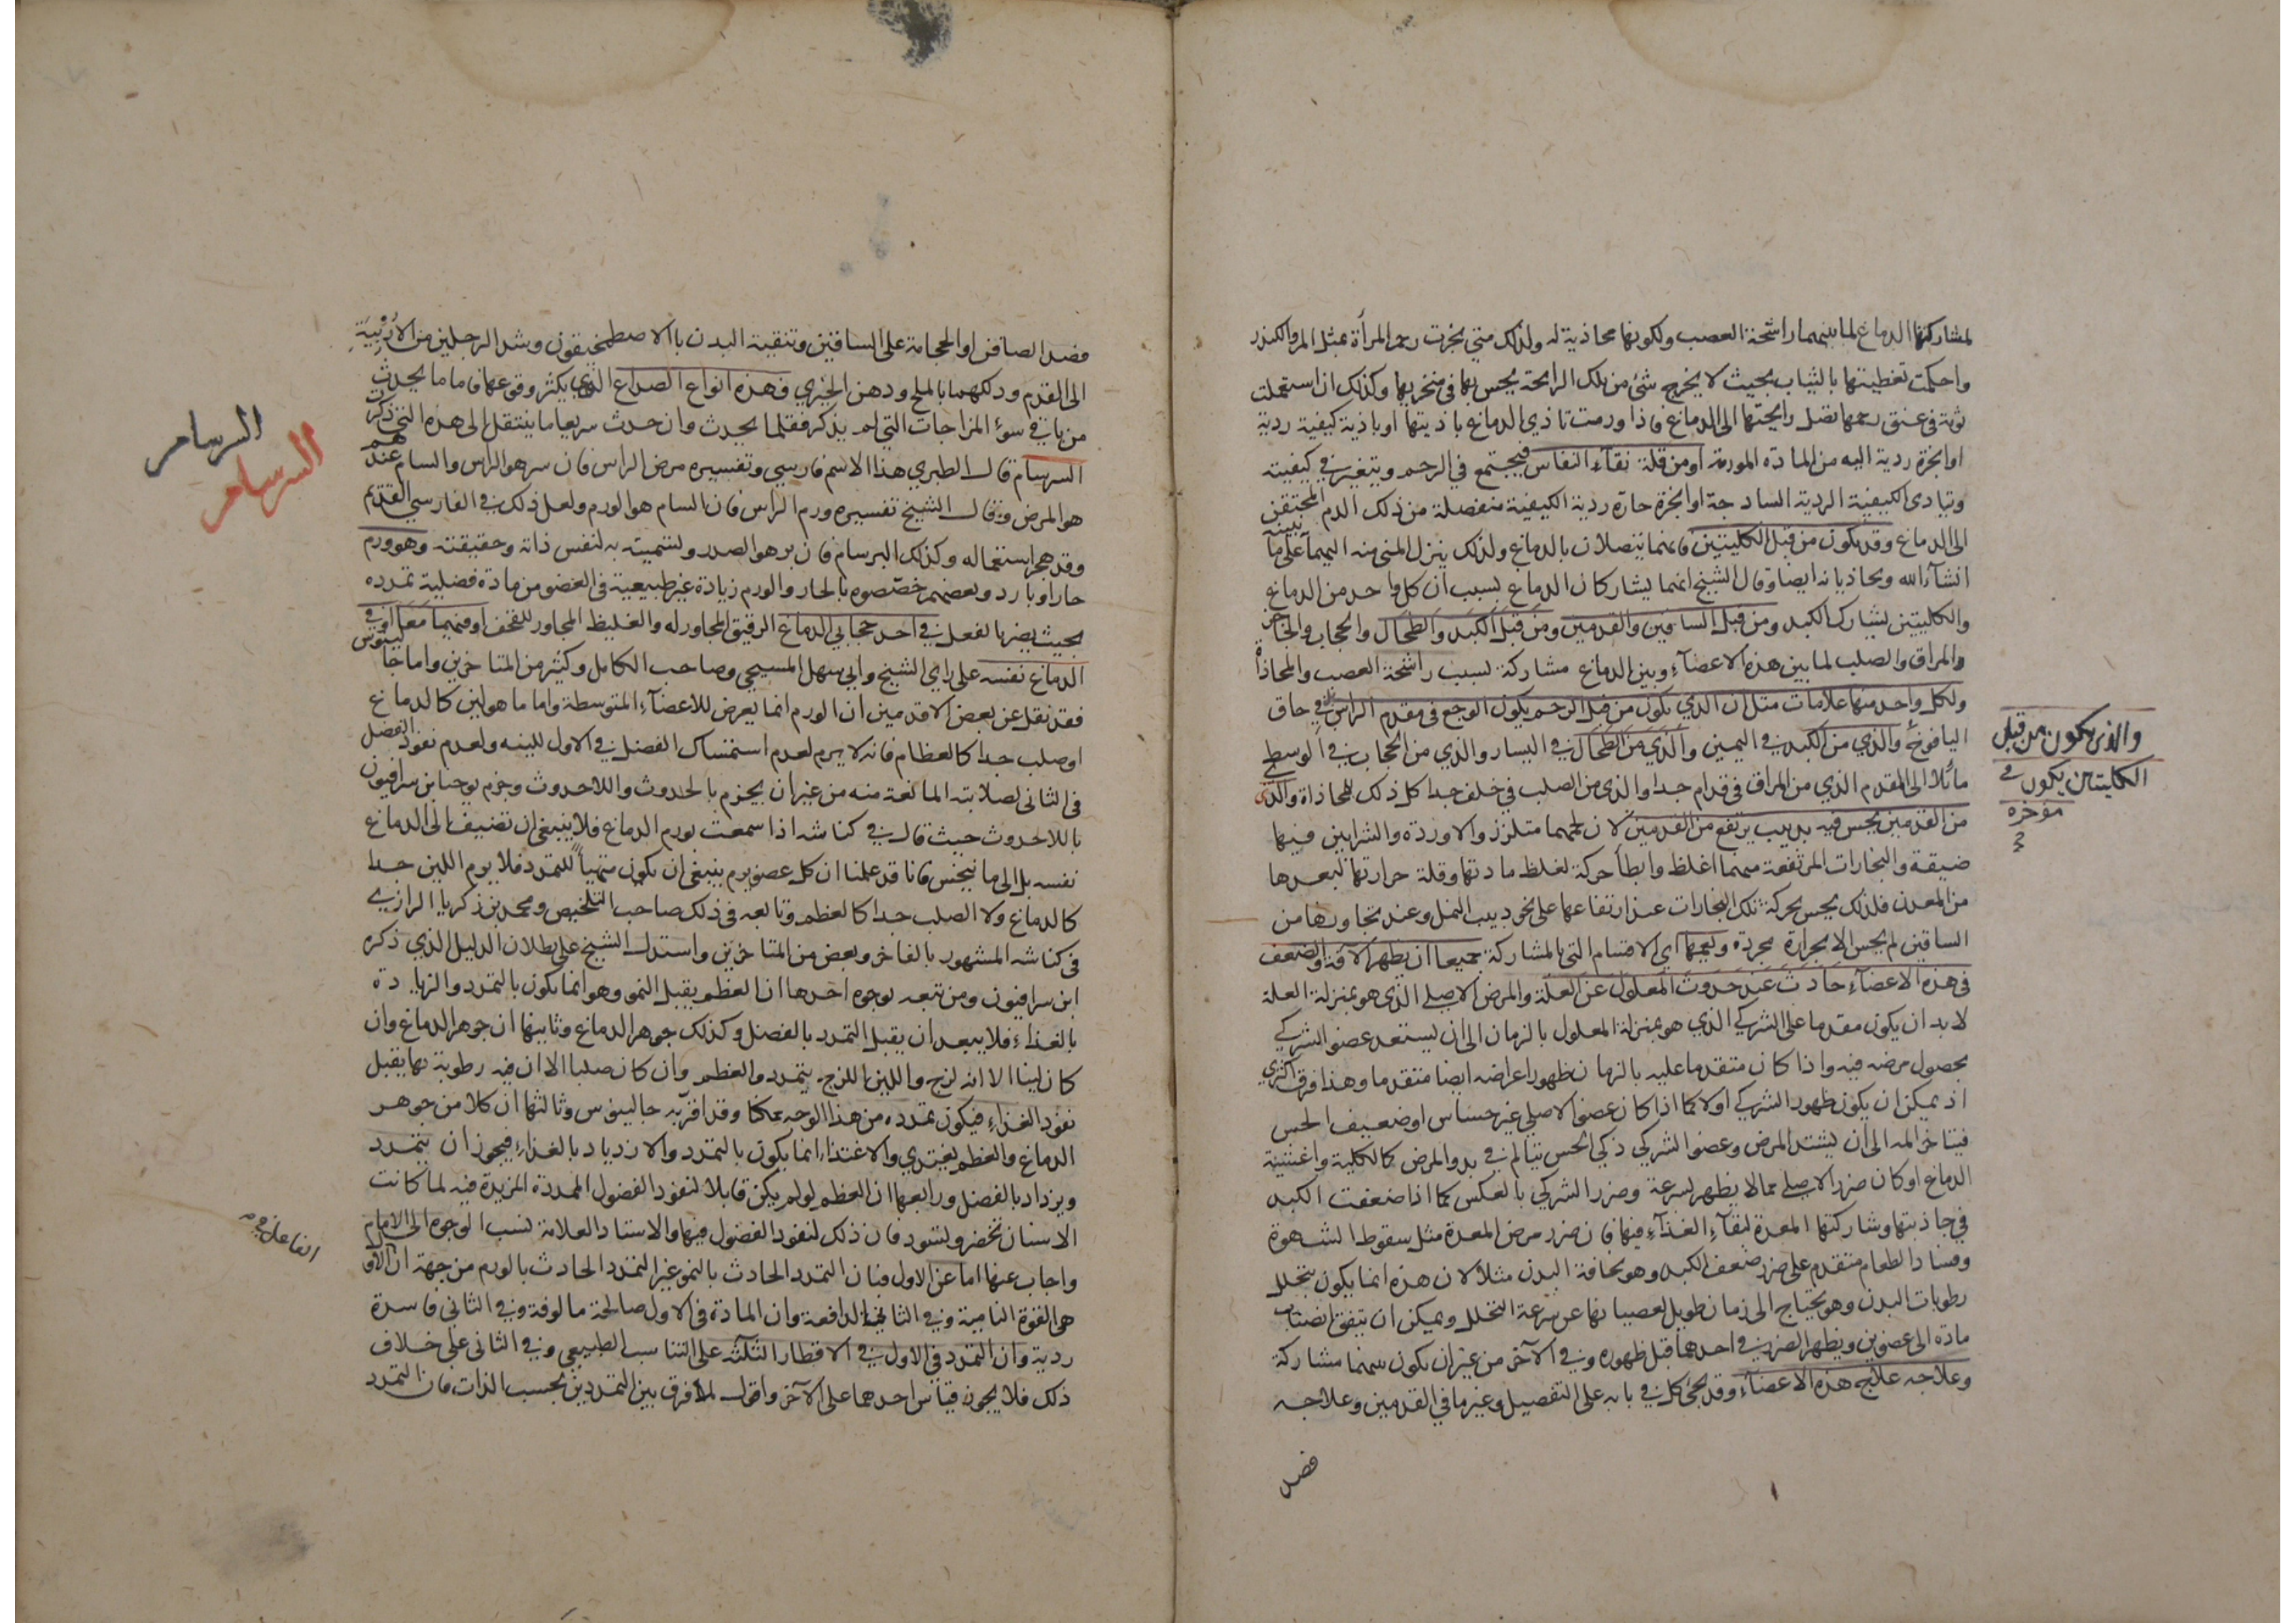 لمشاركتها الدماغ لما بينهما راشحة العصب ولكونها محاذية له ولذلك متى بخرت رحم المرأة بمثل المر والكندر
واحكمت تغطيتها بالثياب بحيث لا يخرج شئ من تلك الرايحة يحس بها في منخريها وكذلك ان استعملت
ثومة في عنق رحمها تصل رايحتها الى الدماغ فاذا ورمت تاذي الدماغ باذيتها او باذية كيفية ردية
او ابخرة ردية اليه من المادة المورمة او من قلة نقاء النفاس فيجتمع في الرحم ويتغير في كيفيته
وتيادى الكيفية الردية الساذجة او ابخرة حارة ردية الكيفية منفصلة من ذلك الدم المحتقن
الى الدماغ وقد يكون من قبل الكليتين فانهما يتصلان بالدماغ ولذلك ينزل المني منه اليهما على ما نبينه
انشاء الله ويحاذيانه ايضا وقال الشيخ انهما يشاركان الدماغ بسبب ان كل واحد من الدماغ
والكليتين يشارك الكبد ومن قبل الساقين والقدمين ومن قبل الكبد والطحال والحجاب
والمراق والصلب لما بين هذه الاعضاء وبين الدماغ مشاركة بسبب راشحة العصب والمحاذاة
ولكل واحد منها علامات مثل ان الذي يكون من قبل الرحم يكون الوجع في مقدم الراس في حاق
اليافوخ والذي من الكبد في اليمين والذي من الطحال في اليسار والذي من الحجاب في الوسط
مائلا الى المقدم الذي من المراق في قدام جدا والذي من الصلب في خلف جدا كل ذلك للمحاذاة والذي
من القدمين يحس فيه بدبيب يرتفع من القدمين لان لحمهما متلزز والاوردة والشرايين فيها
ضيقة والبخارات المرتفعة منهما اغلظ وابطأ حركة لغلظ مادتها وقلة حرارتها لبعدها
من المعدن فلذلك يحس بحركة تلك البخارات عند ارتفاعها على نحو دبيب النمل وعند تجاوزها من
الساقين لم يحس الا بحرارة مجردة ويعمها اي الاقسام التي بالمشاركة جميعا ان يظهر الآفة والضعف
في هذه الاعضاء حادث عند حدوث المعلول عن العلة والمرض الاصلي الذي هو بمنزلة العلة
لا بد ان يكون مقدما على الشركي الذي هو بمنزلة المعلول بالزمان الى ان يستعد عضو الشركي
بحصول مرضه فيه واذا كان متقدما عليه بالزمان ظهور اعراضه ايضا متقدما وهذا فرق اكثري
اذ يمكن ان يكون ظهور الشركي اولا كما اذا كان عضو الاصلي غير حساس او ضعيف الحس
فيتاخر المه الى ان يشتد المرض وعضو الشركي ذكي الحس يتالم في بدو المرض كالكلية واغشية
الدماغ او كان ضرر الاصلي مما لا يظهر بسرعة وضرر الشركي بالعكس كما اذا ضعفت الكبد
في جاذبتها وشاركتها المعدة لبقاء الغذاء فيها فان ضرر مرض المعدة مثل سقوط الشهوة
وفساد الطعام متقدم على ضرر ضعف الكبد وهو نحافة البدن مثلا لان هذه انما يكون بتحلل
رطوبات البدن وهو يحتاج الى زمان طويل لعصيانها عن سرعة التحلل ويمكن ان يتفق انصباب
مادة الى عضوين ويظهر الضرر في احدهما قبل ظهوره في الآخر من غير ان يكون بينهما مشاركة
وعلاجه علاج هذه الاعضاء وقد يجئ كل في بابه على التفصيل وغيرها في القدمين وعلاجه
فصد
والذي يكون من قبل
الكليتين يكون في
مؤخره
فصد الصافن او الحجامة على الساقين وتنقية البدن بالاصطمخيقون وشد الرجلين من الاربية
الى القدم ودلكهما بالملح ودهن الخيري فهذه انواع الصداع الذي يكثر وقوعها فاما ما يحدث
من باقي سوء المزاجات التي لم يذكر فقلما يحدث وان حدث سريعا ما ينتقل الى هذه التي ذكر
السرسام قال الطبري هذا الاسم فارسي وتفسيره مرض الراس فان سر هو الراس والسام عندهم
هو المرض وقال الشيخ تفسيره ورم الراس فان السام هو الورم ولعل ذلك في الفارسي القديم
وقد هجر استعماله وكذلك البرسام فان بر هو الصدر وتسميته به لنفس ذاته وحقيقته وهو ورم
حار او بارد وبعضهم خصصوه بالحار والورم زيادة غير طبيعية في العضو من مادة فضلية تمدده
بحيث يضر بالفعل في احد حجابي الدماغ الرقيق المجاور له والغليظ المجاور للقحف او فيهما معا او في
الدماغ نفسه على راي الشيخ وابي سهل المسيحي وصاحب الكامل وكثير من المتاخرين واما جالينوس
فقد نقل عن بعض الاقدمين ان الورم انما يعرض للاعضاء المتوسطة واما ما هو لين كالدماغ
او صلب جدا كالعظام فانه لا يرم لعدم استمساك الفضل في الاول للينه ولعدم نفوذ الفضل
في الثاني لصلابته المانعة منه من غير ان يجزم بالحدوث واللاحدوث وجزم يوحنا بن سرافيون
باللاحدوث حيث قال في كناشه اذا سمعت بورم الدماغ فلا ينبغي ان تضيف الى الدماغ
نفسه بل الى ما يتجنس فانا قد علمنا ان كل عضو يرم ينبغي ان يكون متهيأ للتمدد فلا يرم اللين جدا
كالدماغ ولا الصلب جدا كالعظم وتابعه في ذلك صاحب التلخيص ومحمد بن زكريا الرازي
في كناشه المشهور بالفاخر وبعض من المتاخرين واستدل الشيخ على بطلان الدليل الذي ذكره
ابن سرافيون ومن تبعه بوجوه احدها ان العظم يقبل النمو وهو انما يكون بالتمدد والزيادة
بالغذاء فلا يبعد ان يقبل التمدد بالفضل وكذلك جوهر الدماغ وثانيها ان جوهر الدماغ وان
كان لينا الا انه لزج واللين اللزج يتمدد والعظم وان كان صلبا الا ان فيه رطوبة بها يقبل
نفوذ الغذاء فيكون تمدده من هذا الوجه ممكنا وقد اقر به جالينوس وثالثها ان كلا من جوهر
الدماغ والعظم يغتذي والاغتذاء انما يكون بالتمدد والازدياد بالغذاء فيجوز ان يتمدد
ويزداد بالفضل ورابعها ان العظم لو لم يكن قابلا لنفوذ الفضول الممددة المزيدة فيه لما كانت
الاسنان تخضر وتسود فان ذلك لنفوذ الفضول فيها والاستاد العلامة نسب الوجوه الى الامام
واجاب عنها اما عن الاول فبان التمدد الحادث بالنمو غير التمدد الحادث بالورم من جهة ان الاول
هي القوة النامية وفي الثاني الدافعة وان المادة في الاول صالحة مالوفة وفي الثاني فاسدة
ردية وان التمدد في الاول في الاقطار الثلثة على التناسب الطبيعي وفي الثاني على خلاف
ذلك فلا يجوز قياس احدهما على الآخر واقول لا فرق بين التمددين بحسب الذات فان التمدد
السرسام
السرسام
الفاعل فيه